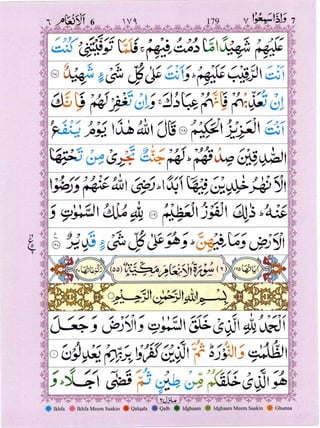 ٦ اَلْاَنْعَام ٦ ١٧٩ 179 ٧ وَاِذَاسَمِعُوْا 7
عَلَيْهِمْ شَهِيْدًا مَّا دُمْتُ فِيْهِمْ ۚ فَلَمَّا تَوَفَّيْتَنِيْ كُنْتَ
اَنْتَ الرَّقِيْبَ عَلَيْهِمْ ؕ وَاَنْتَ عَلٰى كُلِّ شَيْءٍ شَهِيْدٌ
اِنْ تُعَذِّبْهُمْ فَاِنَّهُمْ عِبَادُكَ ۚ وَاِنْ تَغْفِرْ لَهُمْ فَاِنَّكَ
اَنْتَ الْعَزِيْزُ الْحَكِيْمُ قَالَ اللّٰهُ هٰذَا يَوْمُ يَنْفَعُ
الصّٰدِقِيْنَ صِدْقُهُمْ ؕ لَهُمْ جَنّٰتٌ تَجْرِيْ مِنْ تَحْتِهَا
الْاَنْهٰرُ خٰلِدِيْنَ فِيْهَاۤ اَبَدًا ؕ رَضِيَ اللّٰهُ عَنْهُمْ وَرَضُوْا
عَنْهُ ؕ ذٰلِكَ الْفَوْزُ الْعَظِيْمُ لِلّٰهِ مُلْكُ السَّمٰوٰتِ وَ
الْاَرْضِ وَمَا فِيْهِنَّ ؕ وَهُوَ عَلٰى كُلِّ شَيْءٍ قَدِيْرٌ
(٦) سُوْرَةُ الْاَنْعَامِ مَكِّيَّةٌ (٥٥)
بِسْمِ اللّٰهِ الرَّحْمٰنِ الرَّحِيْمِ
اَلْحَمْدُ لِلّٰهِ الَّذِيْ خَلَقَ السَّمٰوٰتِ وَالْاَرْضَ وَجَعَلَ
الظُّلُمٰتِ وَالنُّوْرَ ؕ ثُمَّ الَّذِيْنَ كَفَرُوْا بِرَبِّهِمْ يَعْدِلُوْنَ
هُوَ الَّذِيْ خَلَقَكُمْ مِّنْ طِيْنٍ ثُمَّ قَضٰۤى اَجَلًا ؕ وَ
منزل ٢
Ikhfa Ikhfa Meem Saakin Qalqala Qalb Idghaam Idghaam Meem Saakin Ghunna